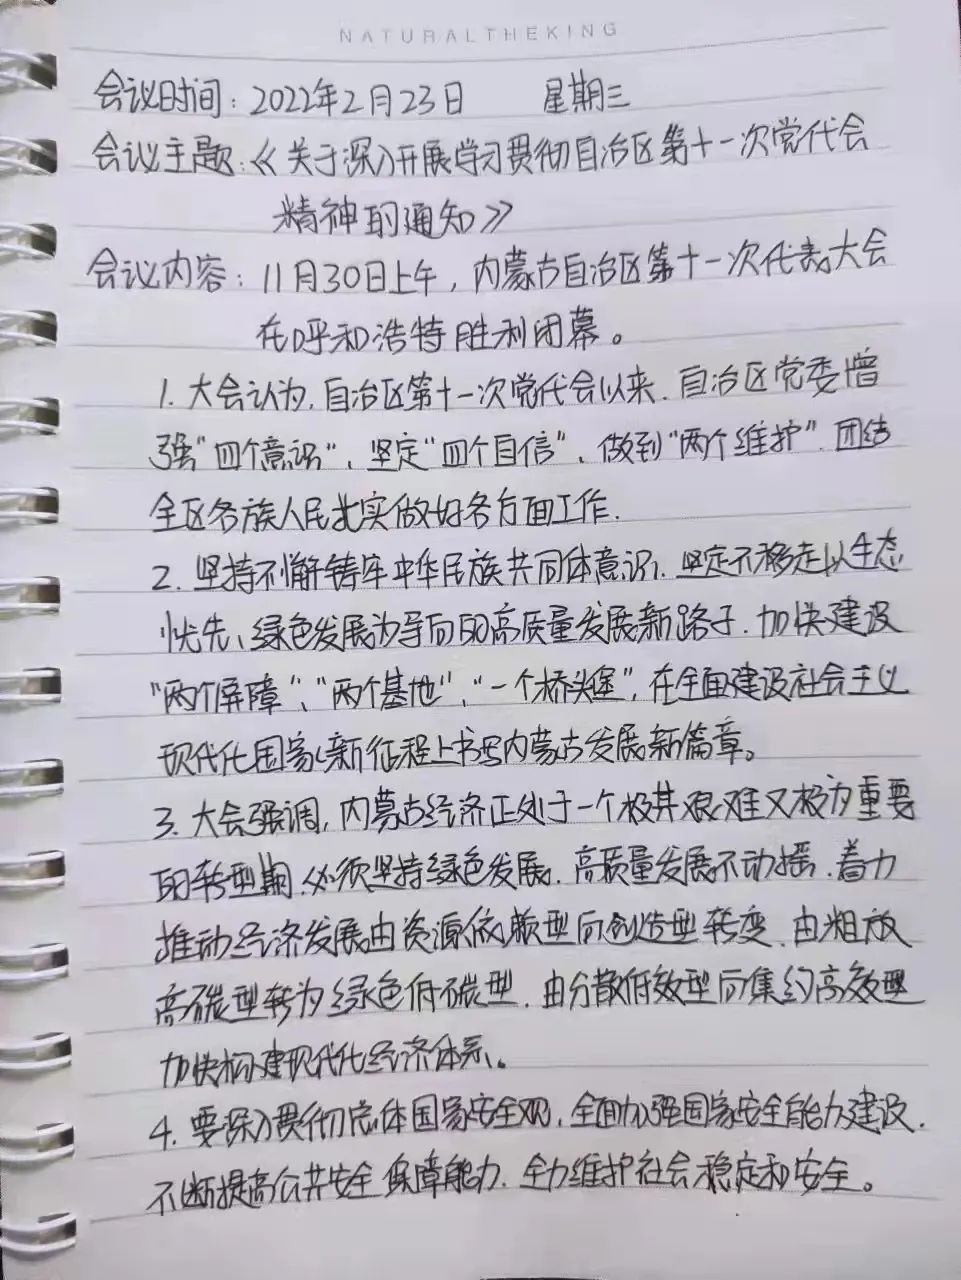 NATURALTHEKING
会议时间：2022年2月23日 星期三
会议主题：《关于深入开展学习贯彻自治区第十一次党代会
精神的通知》
会议内容：11月30日上午，内蒙古自治区第十一次代表大会
在呼和浩特胜利闭幕。
1. 大会认为，自治区第十一次党代会以来，自治区党委增
强“四个意识”、坚定“四个自信”、做到“两个维护”，团结
全区各族人民扎实做好各方面工作.
2. 坚持不懈铸牢中华民族共同体意识，坚定不移走以生态
优先、绿色发展为导向的高质量发展新路子，加快建设
“两个屏障”、“两个基地”、“一个桥头堡”，在全面建设社会主义
现代化国家新征程上书写内蒙古发展新篇章。
3. 大会强调，内蒙古经济正处于一个极其艰难又极为重要
的转型期，必须坚持绿色发展，高质量发展不动摇，着力
推动经济发展由资源依赖型向创造型转变，由粗放
高碳型转为绿色低碳型，由分散低效型向集约高效型
加快构建现代化经济体系。
4. 要深入贯彻总体国家安全观，全面加强国家安全能力建设，
不断提高公共安全保障能力，全力维护社会稳定和安全。